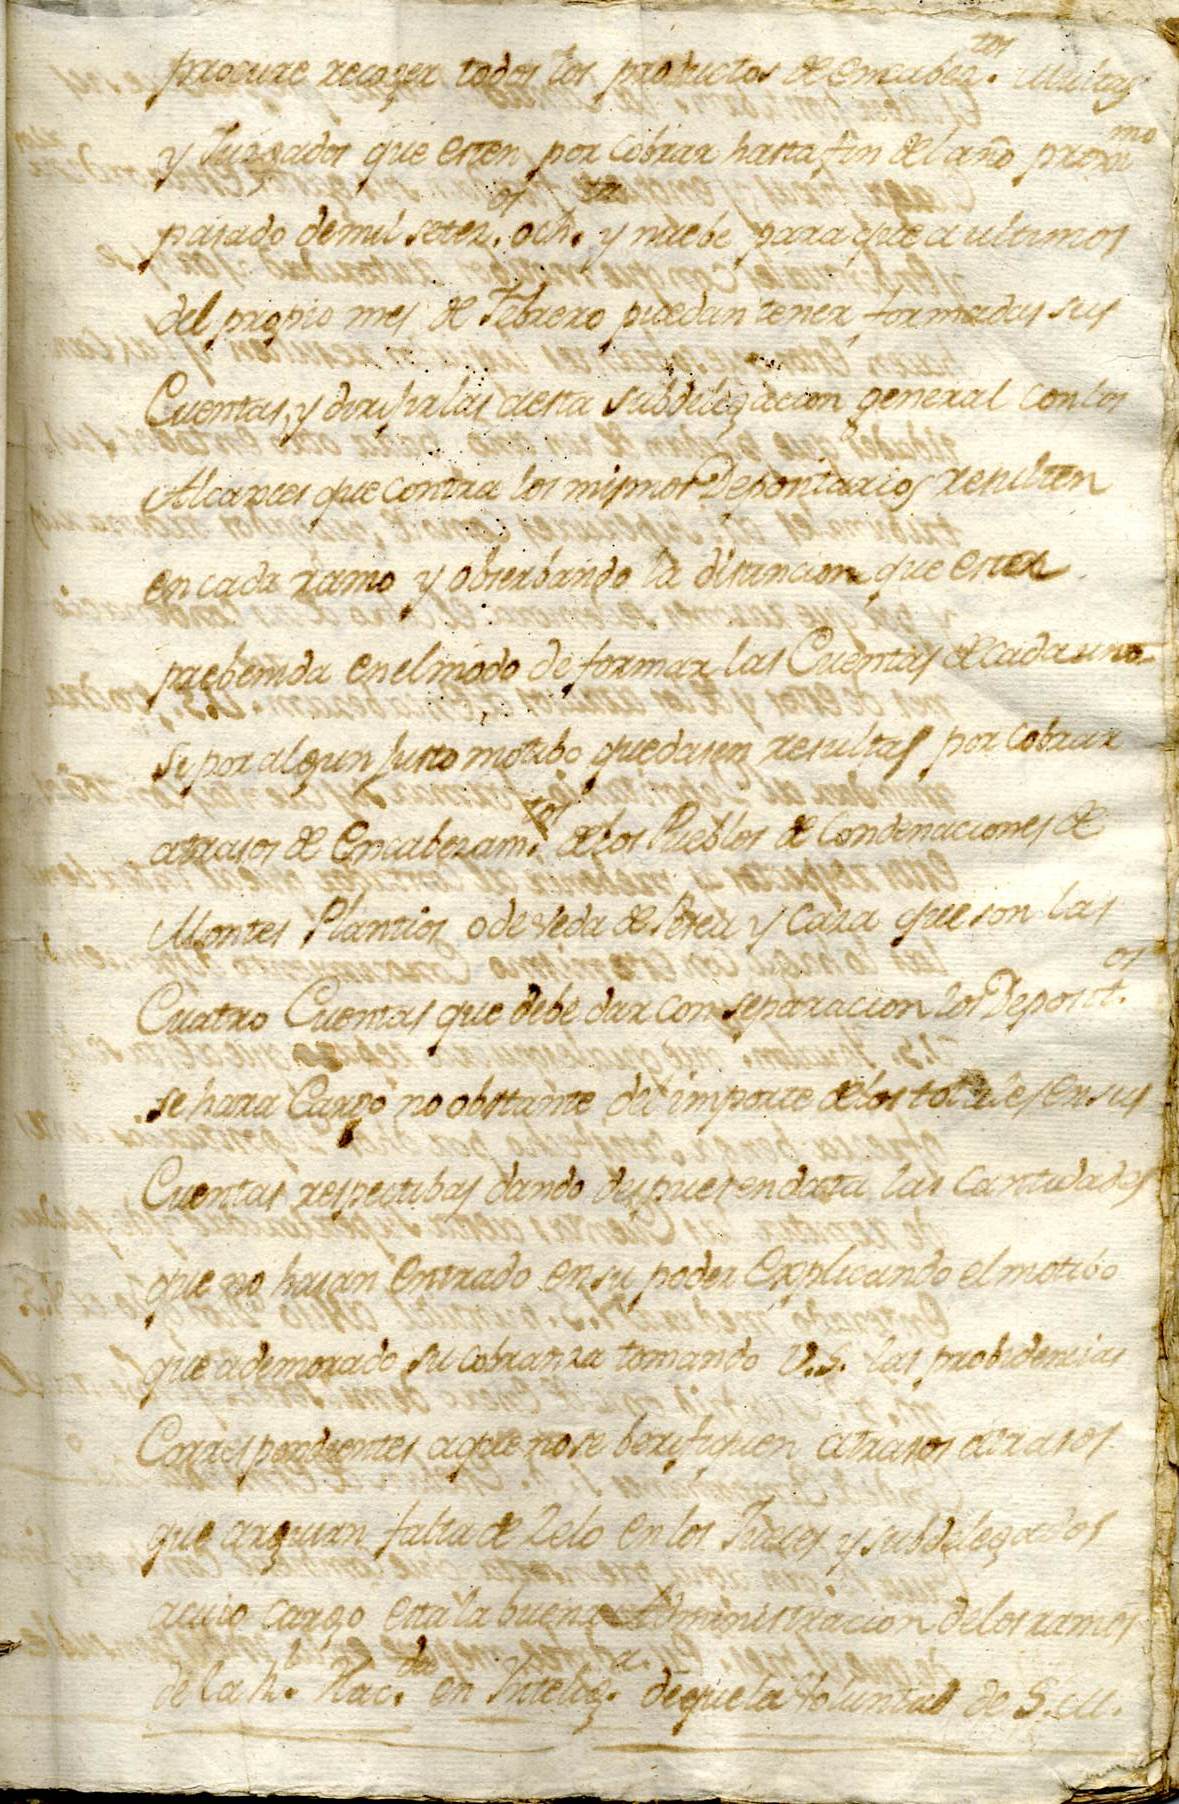 procure recoger todos los productos de encabez.tos Multas
y Juzgados que esten por Cobrar hasta fin del año proxi mo
pasado de mil setez.os och.ta y nuebe para que a ultimos
del propio mes de Febrero puedan tener formadas sus
Cuentas, y dirijirlas a esta subdelegacion general con los
Alcances que contra los mismos Depositarios resulten
en cada ramo y obserbando la distincion que esta
prebenida en el modo de formar las Cuentas de cada uno
Si por algun Justo motibo quedasen resultas por Cobrar
atrasos de Encabezam.tos de los Pueblos de Condenaciones de
Montes Plantios o de veda de Pesca y Caza que son las
Cuatro Cuentas que debe dar con separacion los Deposit.os
se hara Cargo no obstante del importe de los totales en sus
Cuentas respectibas dando despues en data las Cantidades
que no haian Entrado en su poder Explicando el motibo
que a demorado su cobranza tomando V.S. las probidencias
Correspondientes a que no se berifiquen atrasos atrasos
que arguian falta de Zelo en los Jueces y subdelegados
a cuio cargo esta la buena Administracion de los ramos
de la R.l Hac.da en Intelig.a de que la voluntad de S.M.